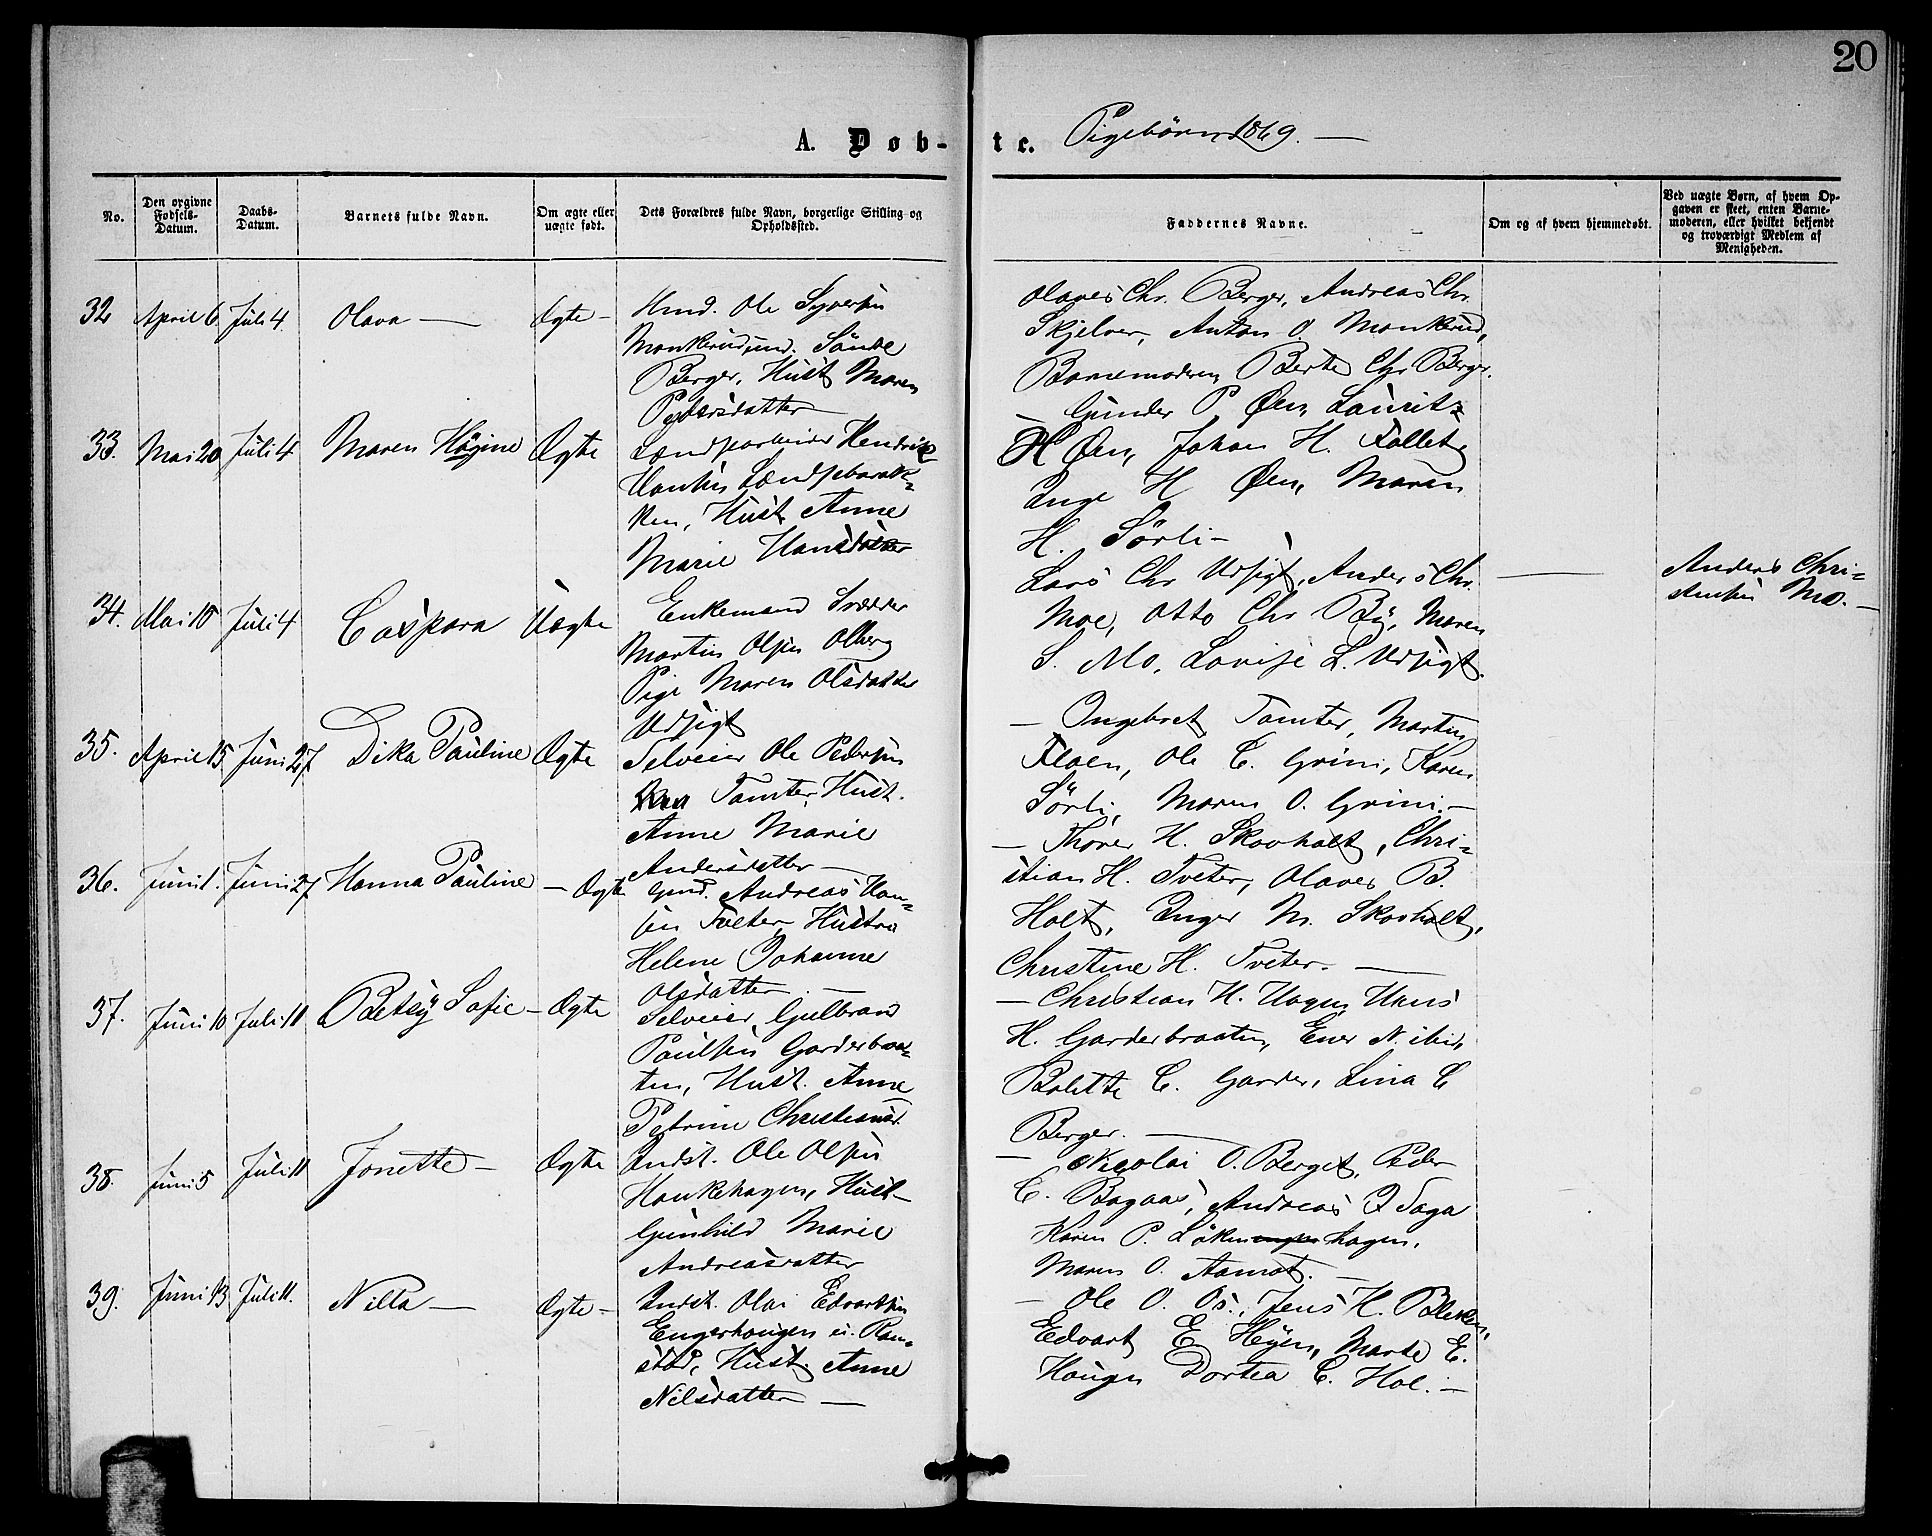 20
A. Døb-te. Pigebörn 1869. —
No.
Den opgivne Fødsels-Datum.
Daabs-Datum.
Barnets fulde Navn.
Om ægte eller uægte født.
Dets Forældres fulde Navn, borgerlige Stilling og Opholdssted.
Faddernes Navne.
Om og af hvem hjemmedøbt.
Ved uægte Børn, af hvem Opgaven er skeet, enten Barnemoderen, eller hvilket bekjendt og troværdigt Medlem af Menigheden.
32 April 6 Juli 4 Olava — Ægte —
Hmd. Ole Syversen
Monkerud und. Söndre
Berger, Hust Maren
Pedersdatter
Olaves Chr. Berger, Andreas Chr.
Skjelver, Anton O. Monkerud,
Barnemoderen, Berte Chr Berger.
33. Mai 20 Juli 4 Maren Högine Ægte
Hendrik
Hansen
ken, Hust Anne
Marie Hansdatter
— Gunder P. Öen, Laurits
H Öen, Johan H. Fallet,
Inge H Öen, Maren
H. Sörli —
34. Mai 10 Juli 4 Caspara Uægte
Enkemand Skrædder
Martin Olsen Olberg
Pige Maren Olsdatter
Udsigt
Lars Chr Udsigt, Anders Chr.
Moe, Otto Chr By, Maren
S. Mo, Lovise L. Udsigt.
—
Anders Chri-
stensen Mo. —
35. April 15 Juni 27 Dika Pauline Ægte
Selveier Ole Pedersen
Tomter, Hust.
Anne Marie
Andersdatter —
— Engebret Tomter, Martin
Floen, Ole C. Grini, Karen
Sörli, Maren O. Grini. —
36. Juni 1. Juni 27 Hanna Pauline — Ægte
Gmd. Andreas Han-
sen Tveter, Hustru
Helene Johanne
Olsdatter —
— Thorer H. Skovholt, Chri-
stian H. Tveter, Olaves B.
Holt, Inger M. Skovholt,
Christine H. Tveter. —
37. Juni 10 Juli 11 Betsy Sofie — Ægte
Selveier Gulbrand
Paulsen Garderbraa-
ten, Hust. Anne
Petrine Christiansd.
— Christian H. Hagen, Hans
H. Garderbraaten, Ener N. ibid,
Bolette C. Garder, Lina C
Berger. —
38. Juni 5 Juli 11 Jonette — Ægte
Indst. Ole Olsen
Haukehagen, Hust —
Gunhild Marie
Andreasdatter
— Nicolai O. Berget, Peder
C. Bagaas, Andreas J Saga
Karen P. Lökenhagen,
Maren O. Aamot. —
39. Juni 13 Juli 11. Nilla — Ægte —
Indst. Olai Edvartsen
Engerhaugen u. Ram-
stad, Hust. Anne
Nilsdatter —
— Ole O. Os, Jens H. Bleken,
Edvart E. Höyen, Marte E.
Haugen Dortea C. Hol. —